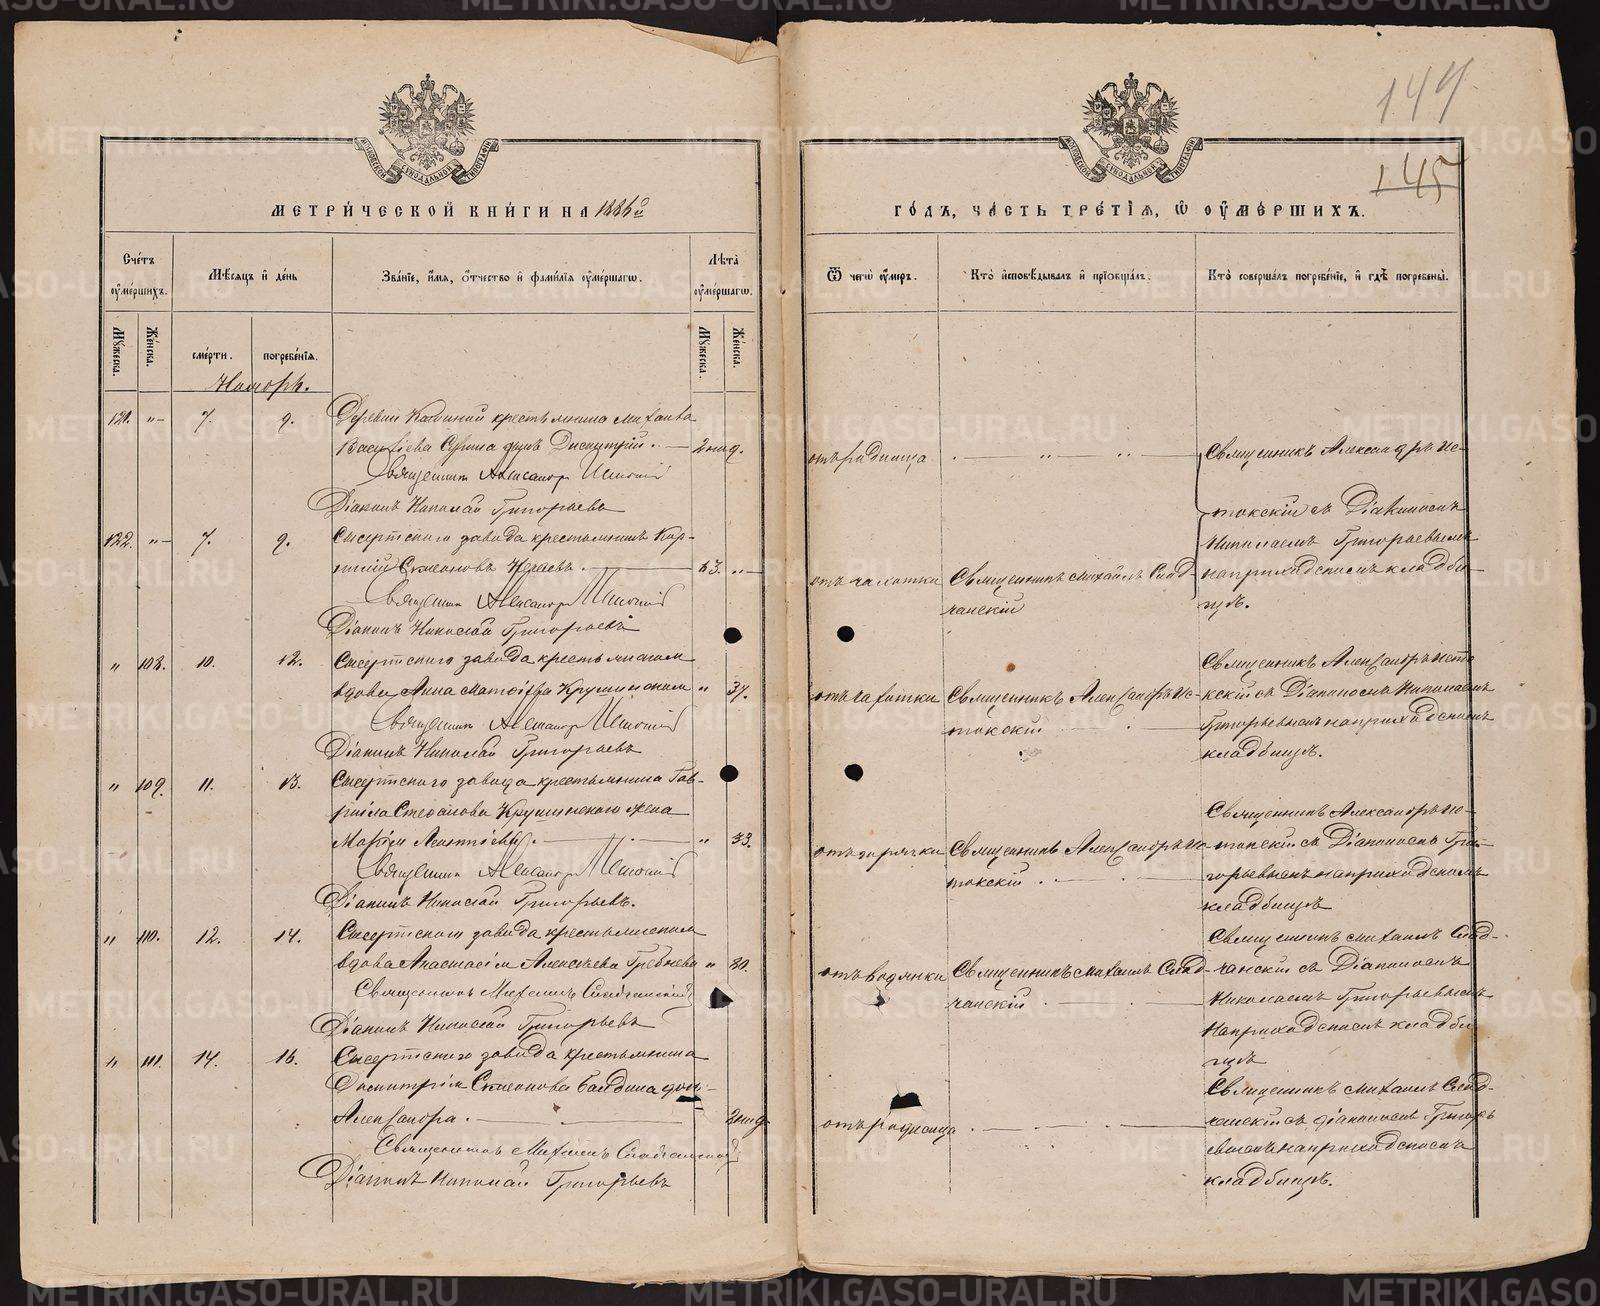 144
145
МОСКОВСКОЙ СѴНОДАЛЬНОЙ ТИПОГРАФІИ
МОСКОВСКОЙ СѴНОДАЛЬНОЙ ТИПОГРАФІИ
МЕТРИЧЕСКОЙ КНИГИ НА 1886й
ГОДЪ, ЧАСТЬ ТРЕТІЯ, Ѿ ОУМЕРШИХЪ.
Счетъ оумершихъ.
Мѣсяцъ и день
Званіе, имя, отчество и фамилія оумершагѡ.
Лѣта оумершагѡ.
Ѿ чегѡ оумеръ.
Кто исповѣдывалъ и пріобщалъ.
Кто совершалъ погребеніе, и гдѣ погребены.
Мужеска.
Женска.
смерти.
погребенія.
Мужеска.
Женска.
Ноябрь.
121. „ 7. 9. Деревни крестьянина Михаила
Васильева сынъ Димитрій. 2 нед.
Священникъ Александръ
Діаконъ Николай Григорьевъ
отъ родимца
Священникъ Александръ Ис-
токскій съ Діакономъ
Николаемъ Григорьевымъ
на приходскомъ кладби-
щѣ.
122. „ 7. 9. Сысертскаго завода крестьянинъ Кор-
нилій Симеоновъ 63. „
Священникъ Александръ
Діаконъ Николай Григорьевъ
отъ чахотки
Священникъ Михаилъ Слад-
чанскій
„ 108. 10. 12. Сысертскаго завода крестьянская
вдова Анна Матвѣева Крушинская „ 37.
Священникъ Александръ
Діаконъ Николай Григорьевъ
отъ чахотки
Священникъ Александръ Ис-
токскій
Священникъ Александръ Исто-
кскій съ Діакономъ Николаемъ
Григорьевымъ на приходскомъ
кладбищѣ.
„ 109. 11. 13. Сысертскаго завода крестьянина Гав-
ріила Стефанова Крушинскаго жена
Марія Леонтіева. „ 33.
Священникъ Александръ
Діаконъ Николай Григорьевъ.
отъ горячки
Священникъ Александръ Ис-
токскій.
Священникъ Александръ Ис-
токскій съ Діакономъ Гри-
горьевымъ на приходскомъ
кладбищѣ
„ 110. 12. 14. Сысертскаго завода крестьянская
вдова Анастасія Алексѣева „ 80.
Священникъ Михаилъ
Діаконъ Николай Григорьевъ
отъ водянки
Священникъ Михаилъ Слад-
чанскій
Священникъ Михаилъ Слад-
чанскій съ Діакономъ
Николаемъ Григорьевымъ
на приходскомъ кладби
щѣ
„ 111. 14. 16. Сысертскаго завода крестьянина
Димитрія Симеонова дочь
Александра. 2 нед.
Священникъ Михаилъ
Діаконъ Николай Григорьевъ
отъ родимца
Священникъ Михаилъ Слад-
чанскій съ діакономъ Григорь
евымъ на приходскомъ
кладбищѣ.
METRIKI.GASO-URAL.RU